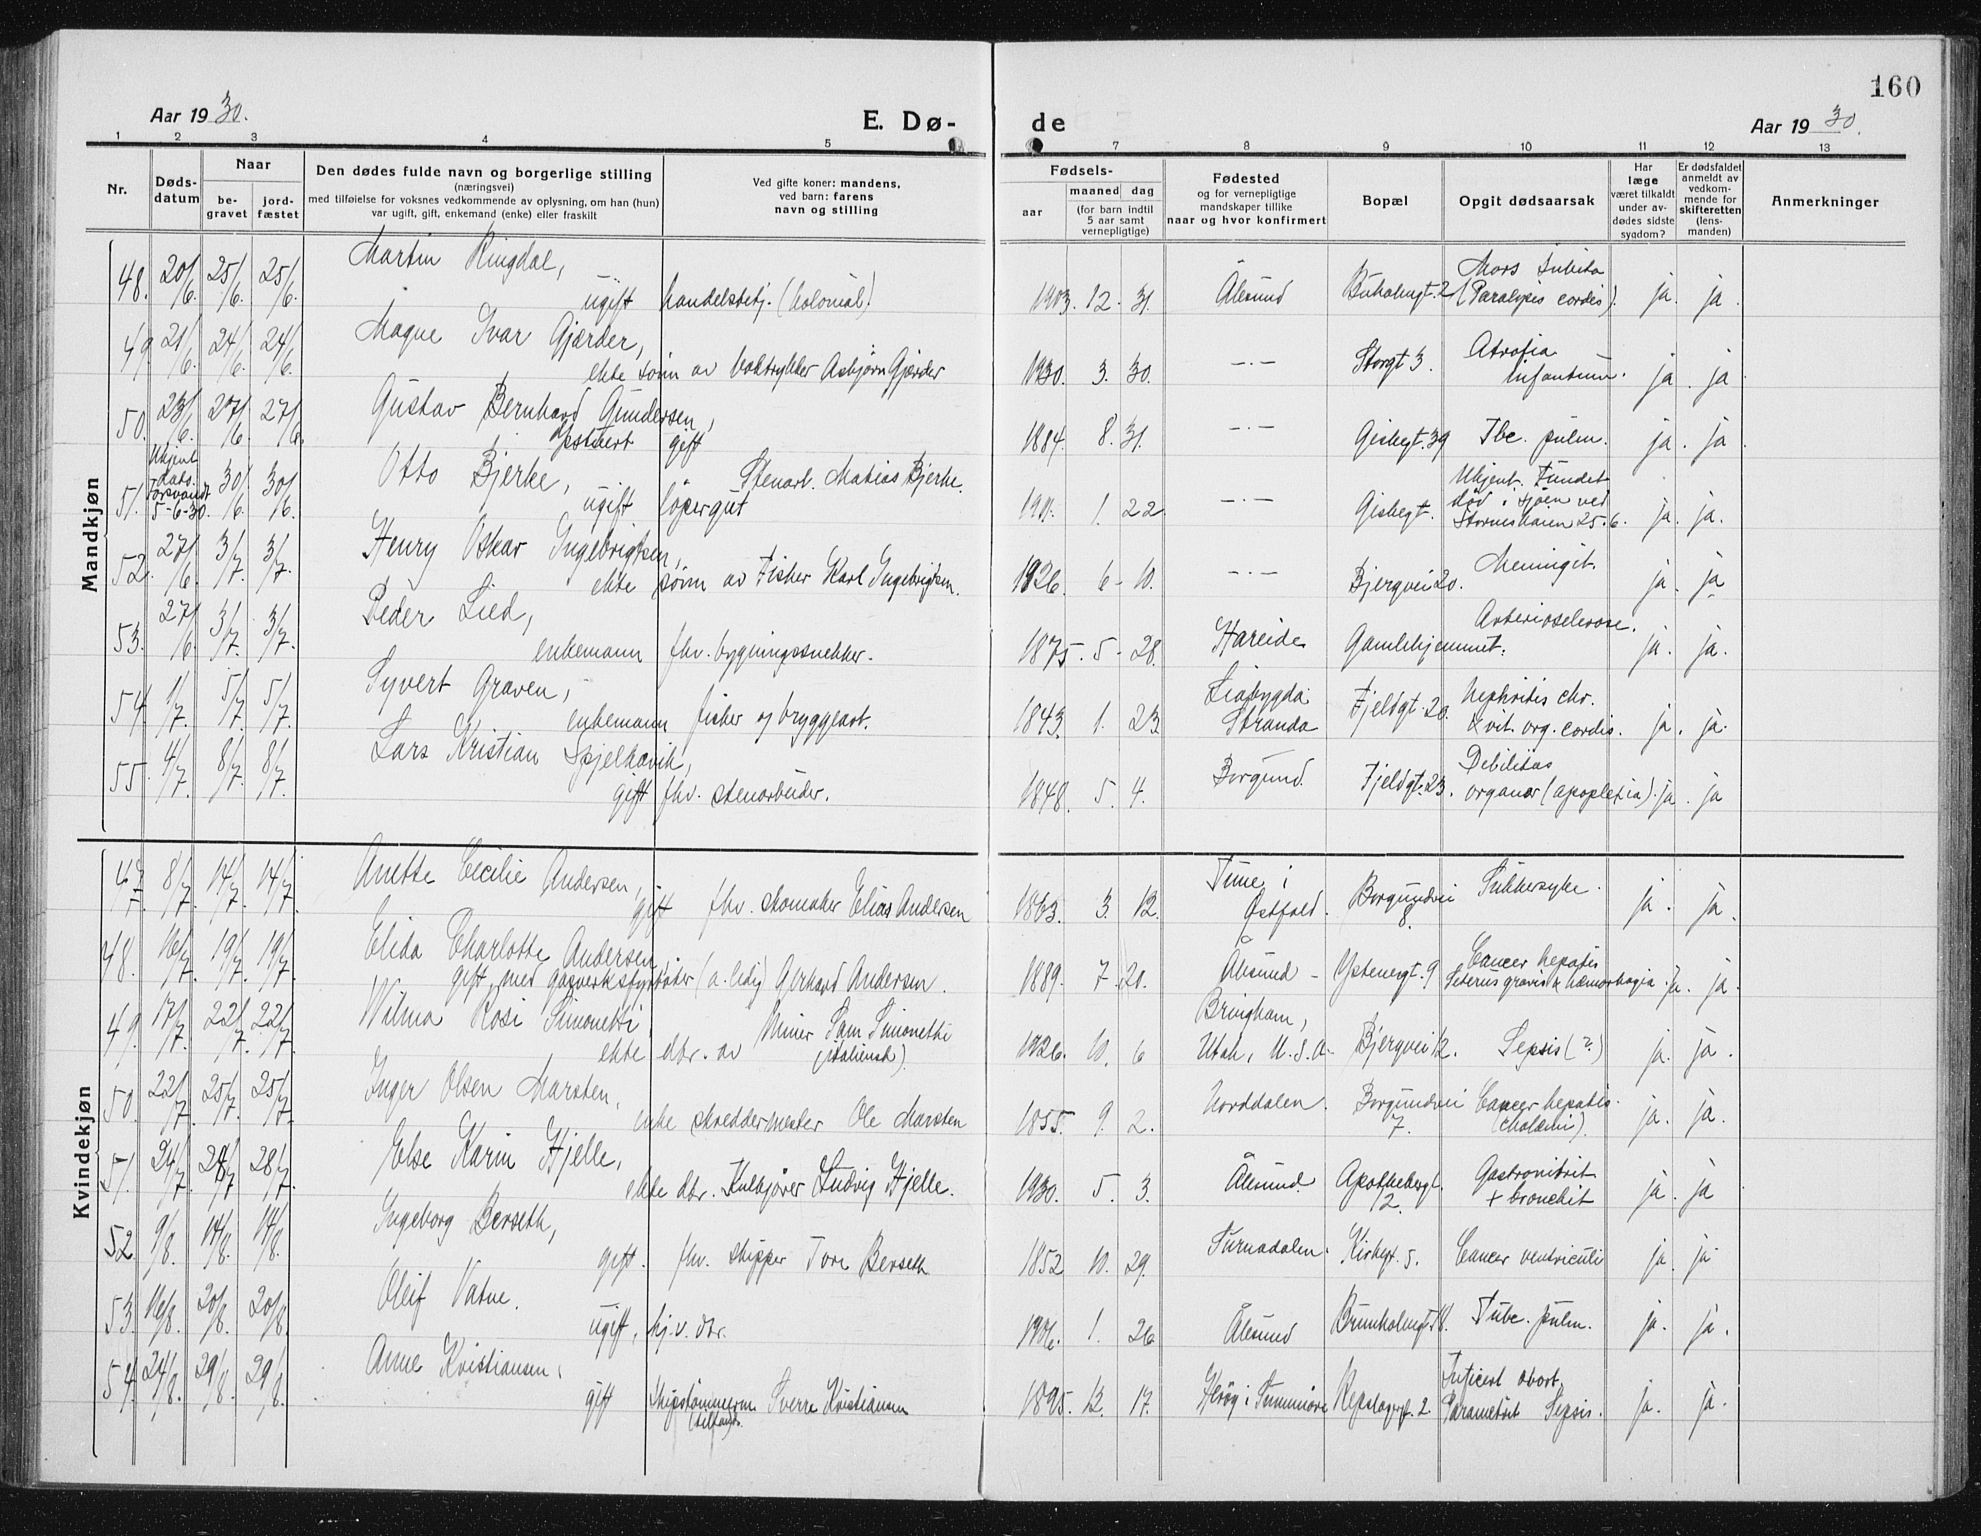 160
Aar 1930.
E. Dø-
de
Aar 1930.
1 2 3 4 5 7 8 9 10 11 12 13
Nr.
Døds-
datum
Naar
be-
gravet
jord-
fæstet
Den dødes fulde navn og borgerlige stilling
(næringsvei)
med tilføielse for voksnes vedkommende av oplysning, om han (hun)
var ugift, gift, enkemand (enke) eller fraskilt
Ved gifte koner: mandens,
ved barn: farens
navn og stilling
Fødsels-
aar
maaned dag
(for barn indtil
5 aar samt
vernepligtige)
Fødested
og for vernepligtige
mandskaper tillike
naar og hvor konfirmert
Bopæl
Opgit dødsaarsak
Har
læge
været tilkaldt
under av-
dødes sidste
sygdom?
Er dødsfaldet
anmeldt av
vedkom-
mende for
skifteretten
(lens-
manden)
Anmerkninger
Mandkjøn
48. 20/6. 25/6. 25/6. Martin Ringdal,
ugift handelsbetj. (kolonial). 1903. 12. 31. Ålesund Buholmgt. 2 Mors subita
(Paralysis cordis). ja. ja.
49. 21/6. 24/6. 24/6. Magne Ivar Gjærder,
ekte sønn av boktrykker Asbjørn Gjærder 1930. 3. 30. -.- Storgt 3. Atrofia
infantum. ja. ja
50. 23/6. 27/6 27/6. Gustav Bernhard Gundersen,
gift 1884. 8. 31. -.- Gisbegt. 39 Tbc. pulm. ja. ja
51. Ukjent
dato.
Forsvandt
5-6-30. 30/6. 30/6. Otto Bjerke, Stenarb. Matias Bjerke.
ugift løpergut 1911. 1. 22. -.- Gisbegt. Ukjent. Fundet
død i sjøen ved
25.6. ja. ja.
52. 27/6 3/7. 3/7. Henry Oskar Ingebrigtsen,
ekte sønn av Fisker Karl Ingebrigtsen. 1926. 6 - 10. -.- Bjergvei 20. Meningit. ja. ja
53. 27/6. 3/7. 3/7. Peder Lied,
enkemann fhv. bygningssnekker. 1875. 5 - 28. Hareide Gamlehjemmet. Arteriosclerose. ja. ja.
54. 1/7. 5/7. 5/7. Syvert Graven,
enkemann fisker og bryggearb. 1843. 1. 23. Liabygda
Stranda Fjeldgt. 20. Nephritis chr.
& vit. org. cordis. ja. ja.
55. 4/7. 8/7. 8/7. Lars Kristian Spjelkavik,
gift fhv. stenarbeider. 1848. 5. 4. Borgund. Fjeldgt. 23. Debilitas
organor (apoplexia). ja. ja
Kvindekjøn
47. 8/7. 14/7. 14/7. Anette Cecilie Andersen,
gift fhv. skomaker Elias Andersen 1863. 3. 12. Tune i
Østfold. Borgundvei
8. Sukkersyke. ja. ja.
48. 16/7. 19/7. 19/7. Elida Charlotte Andersen,
gift, med gasverksfyrbøter (a.ledig) Gerhard Andersen. 1889. 7. 20. Ålesund - Øfstenengt. 9 Cancer hepatis
Icterus gravis & hæmorhagia. ja. ja.
49. 17/7. 22/7. 22/7. Wilma Rosi Simonetti,
ekte dtr. av Miner Sam Simonetti
(italiensk). 1926. 10. 6 Bringham,
Utah, U.S.A. Bjergvei 12. Sepsis (?) ja. ja.
50. 22/7. 25/7. 25/7. Inger Olsen Marsten,
enke skreddermester Ole Marsten 1855. 9. 2. Norddalen. Borgundvei
7. Cancer hepatis.
(cholæmi). ja. ja.
51. 24/7. 28/7 28/7. Else Karin Hjelle,
ekte dtr. Kulkjører Ludvig Hjelle. 1930. 5. 3. Ålesund. Apothekergt.
12. Gastronitrit
+ bronchit ja. ja
52. 9/8. 14/8. 14/8. Ingeborg Berseth,
gift. fhv. skipper Tore Berseth 1852 10. 29. Surnadalen. Kirkegt. 5. Cancer ventriculi ja. ja.
53. 16/8. 20/8. 20/8. Oleif Vatne.
ugift, hj.v. dtr. 1906. 1. 26 Ålesund Brunholmgt. 18. Tubc. pulm. ja. ja.
54. 24/8. 29/8. 29/8. Anne Kristiansen,
gift Skipstømmerm. Sverre Kristiansen 1895. 12. 17. Herøy i Sunnmøre Repslagergt. 2. Inficert abort.
Parametrit Sepsis. ja. ja.